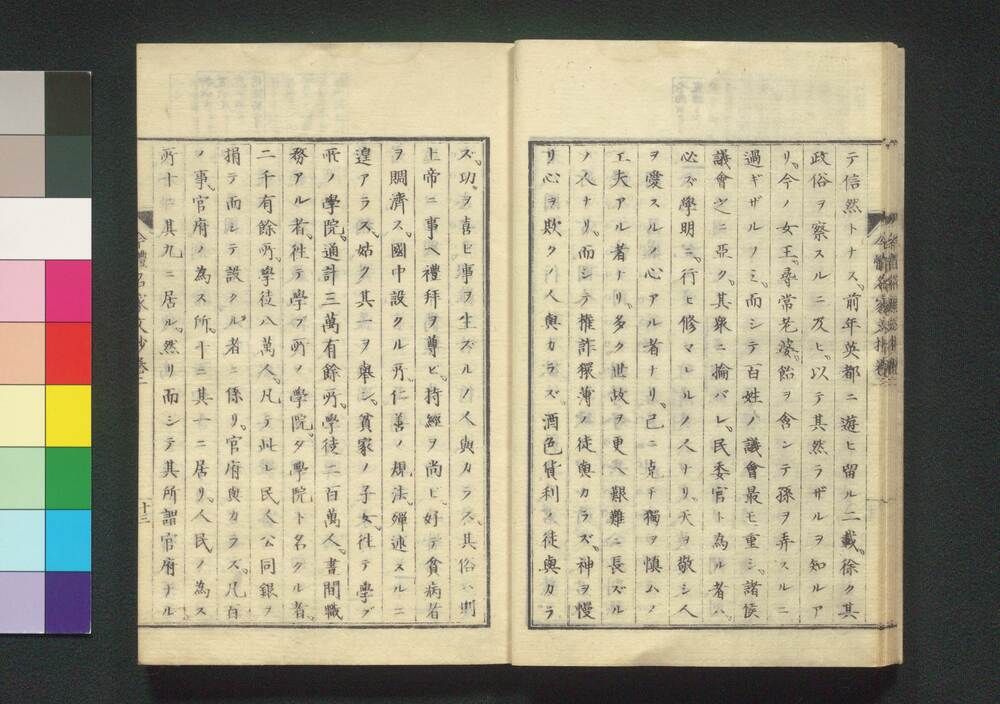 テ信然トナス。前年英都ニ遊ヒ留ル二載。徐ク其
政俗ヲ察スルニ及ヒ。以テ其然ラザルヲ知ルア
リ。今ノ女王。尋常老婆。飴ヲ含ンテ孫ヲ弄スルニ
過ギザルノミ。而シテ百姓ノ議會最モ重シ。諸侯
議會之ニ亞ク。其衆ニ掄バレ。民委官ト為ル者ハ。
必ズ學明ニ。行ヒ修マレルノ人ナリ。天ヲ敬シ人
ヲ愛スルノ心アル者ナリ。己ニ克チ獨ヲ慎ムノ
工夫アル者ナリ。多ク世故ヲ更ヘ艱難ニ長ズル
ノ人ナリ。而シテ權詐獧薄ノ徒與カラズ。神ヲ慢
リ心ヲ欺クノ人與カラズ。酒色貨利ノ徒與カラ
ズ。功ヲ喜ビ事ヲ生ズルノ人與カラス。其俗ハ則
上帝ニ事ヘ禮拜ヲ尊ビ。持經ヲ尚ビ。好テ貧病者
ヲ賙濟ス。國中設クル所。仁善ノ規法。殫述スルニ
遑アラス。姑ク其一ヲ舉ン。貧家ノ子女。往テ學ブ
所ノ學院。通計三萬有餘所。學徒二百萬人。書間職
務アル者。往テ學ブ所ノ學院。夕學院ト名クル者。
二千有餘所。學徒八萬人。凡テ此レ民人公同銀ヲ
捐テ而シテ設クル者ニ係リ。官府與カラズ。凡百
ノ事。官府ノ為ス所。十ニ其一ニ居リ。人民ノ為ス
所十ニ其九ニ居ル。然リ而シテ其所謂官府ナル
十三